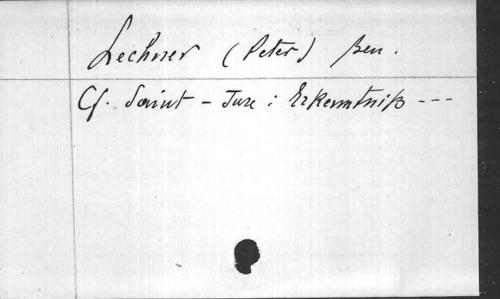 Lechner (Peter) Ben.
Cf. Saint-Jure : Erkenntniß ---